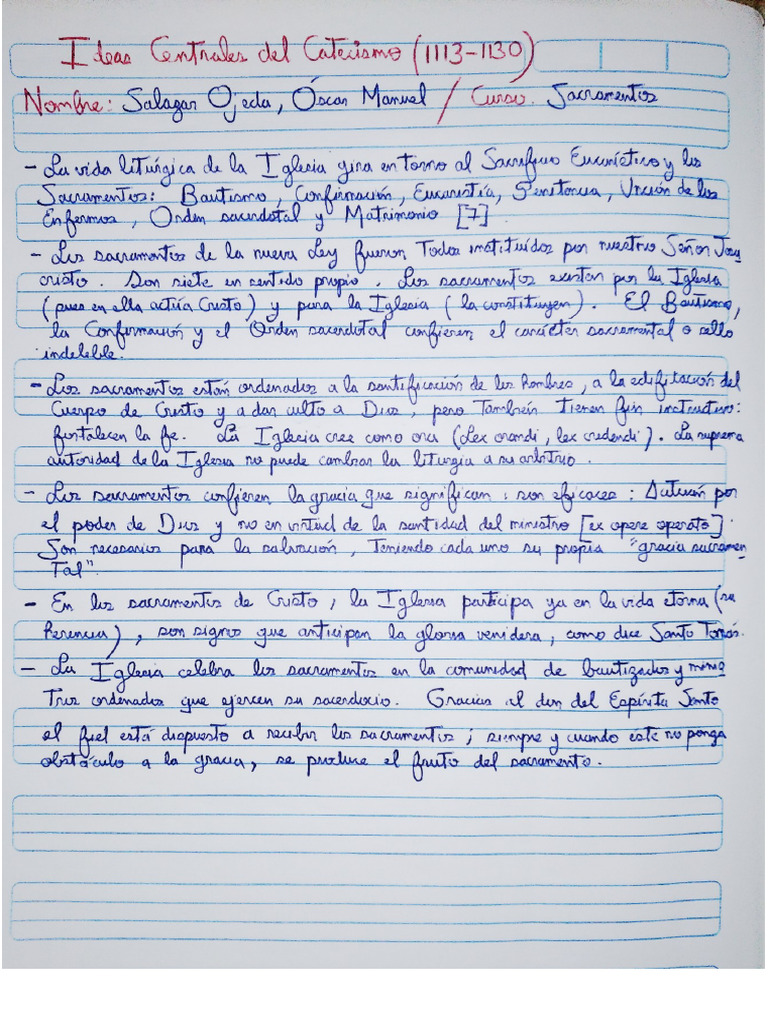 Ideas Centrales del Catecismo (1113-1130)
Nombre: Salazar Ojeda, Óscar Manuel / Curso: Sacramentos
- La vida litúrgica de la Iglesia gira en torno al Sacrificio Eucarístico y los
Sacramentos: Bautismo, Confirmación, Eucaristía, Penitencia, Unción de los
Enfermos, Orden sacerdotal y Matrimonio [7]
- Los sacramentos de la nueva Ley fueron Todos instituídos por nuestro Señor Jesu
cristo. Son siete en sentido propio. Los sacramentos existen por la Iglesia
(pues en ella actúa Cristo) y para la Iglesia (la constituyen). El Bautismo,
la Confirmación y el Orden sacerdotal confieren el carácter sacramental o sello
indeleble.
- Los sacramentos están ordenados a la santificación de los hombres, a la edificación del
Cuerpo de Cristo y a dar culto a Dios, pero También Tienen fin instructivo:
fortalecen la fe. La Iglesia cree como ora (Lex orandi, lex credendi). La suprema
autoridad de la Iglesia no puede cambiar la liturgia a su arbitrio.
- Los sacramentos confieren la gracia que significan; son eficaces: Actúan por
el poder de Dios y no en virtud de la santidad del ministro [ex opere operato].
Son necesarios para la salvación, Teniendo cada uno su propia "gracia sacramen
Tal".
- En los sacramentos de Cristo, la Iglesia participa ya en la vida eterna (su
herencia), son signos que anticipan la gloria venidera, como dice Santo Tomás.
- La Iglesia celebra los sacramentos en la comunidad de bautizados y minis
Tros ordenados que ejercen su sacerdocio. Gracias al don del Espíritu Santo
el fiel está dispuesto a recibir los sacramentos; siempre y cuando este no ponga
obstáculo a la gracia, se produce el fruto del sacramento.